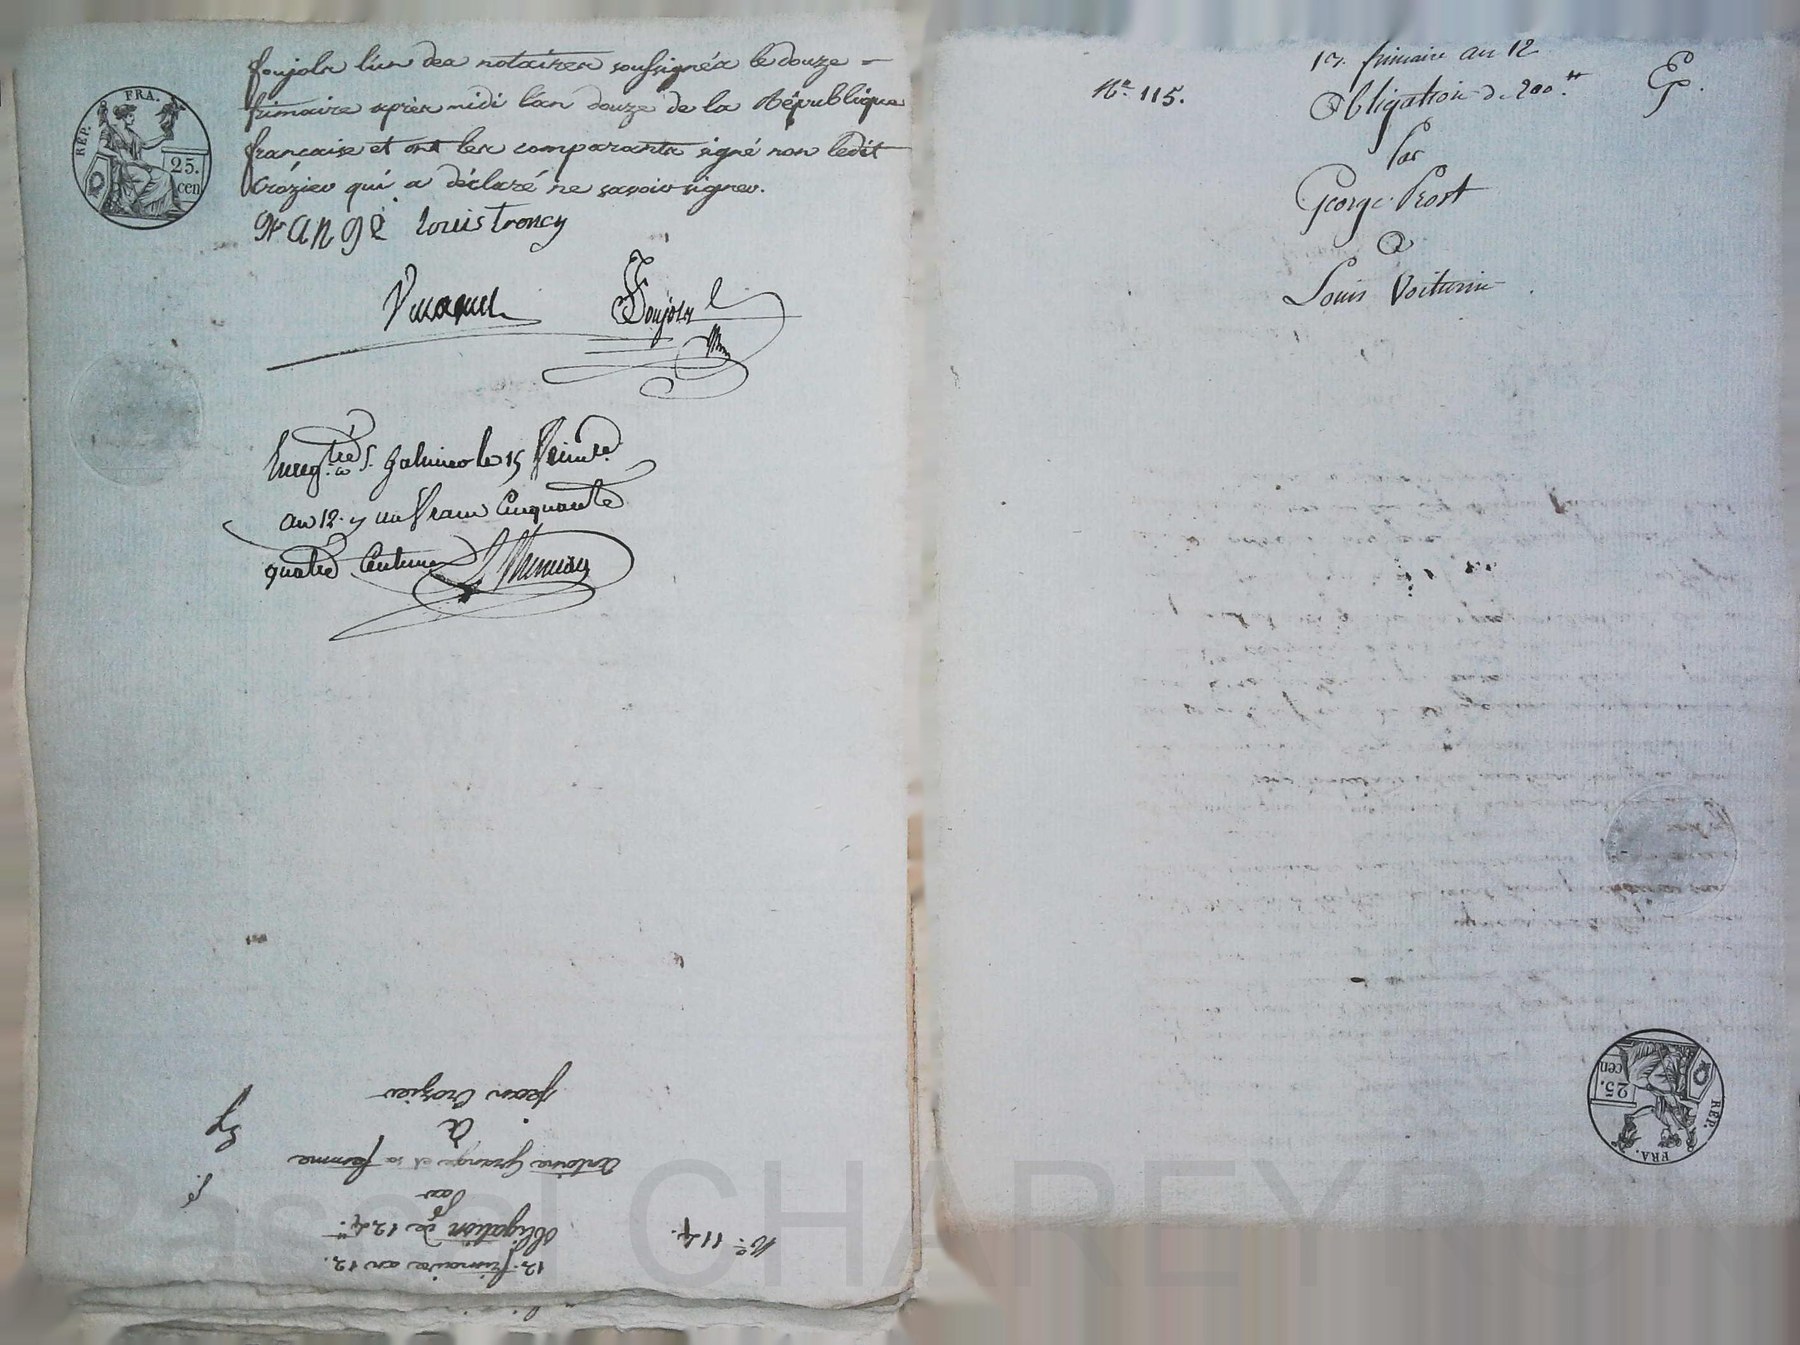 foujols l'un des notaires soussignés le douze =
frimaire après midi l'an douze de la République
francaise et ont les comparants signé non ledit
Crozier qui a déclaré ne savoir signer.
REP. FRA.
25.
cen
grange Louis troncy
foujols
Enregtré à St. galmier le 15 frimre
an 12. un franc Cinquante
quatre Centimes
12. frimaire an 12.
Obligation de 124.tt
Par
Antoine Grange et sa femme
à
jean Crozier
No. 114.
No. 115.
frimaire an 12
Obligation de 200.tt
Par
George Prost
à
Louis Voiturin
REP. FRA.
25.
cen
Pascal CHAREYRON